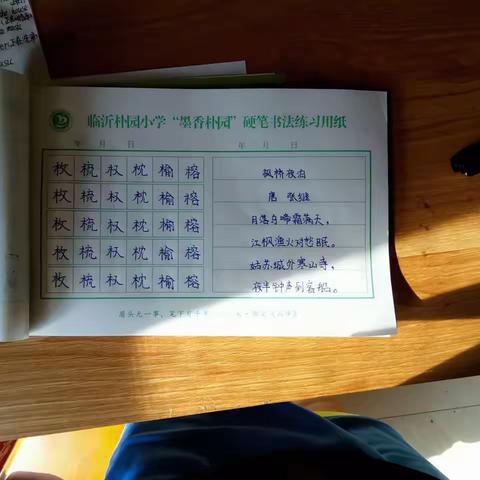 临沂朴园小学“墨香朴园”硬笔书法练习用纸
年 月 日
年 月 日
枚 梳 杈 枕 榆 榕
枚 梳 杈 枕 榆 榕
枚 梳 杈 枕 榆 榕
枚 梳 杈 枕 榆 榕
枚 梳 杈 枕 榆 榕
枫桥夜泊
唐 张继
月落乌啼霜满天,
江枫渔火对愁眠。
姑苏城外寒山寺,
夜半钟声到客船。
眉头无一事,笔下有千年